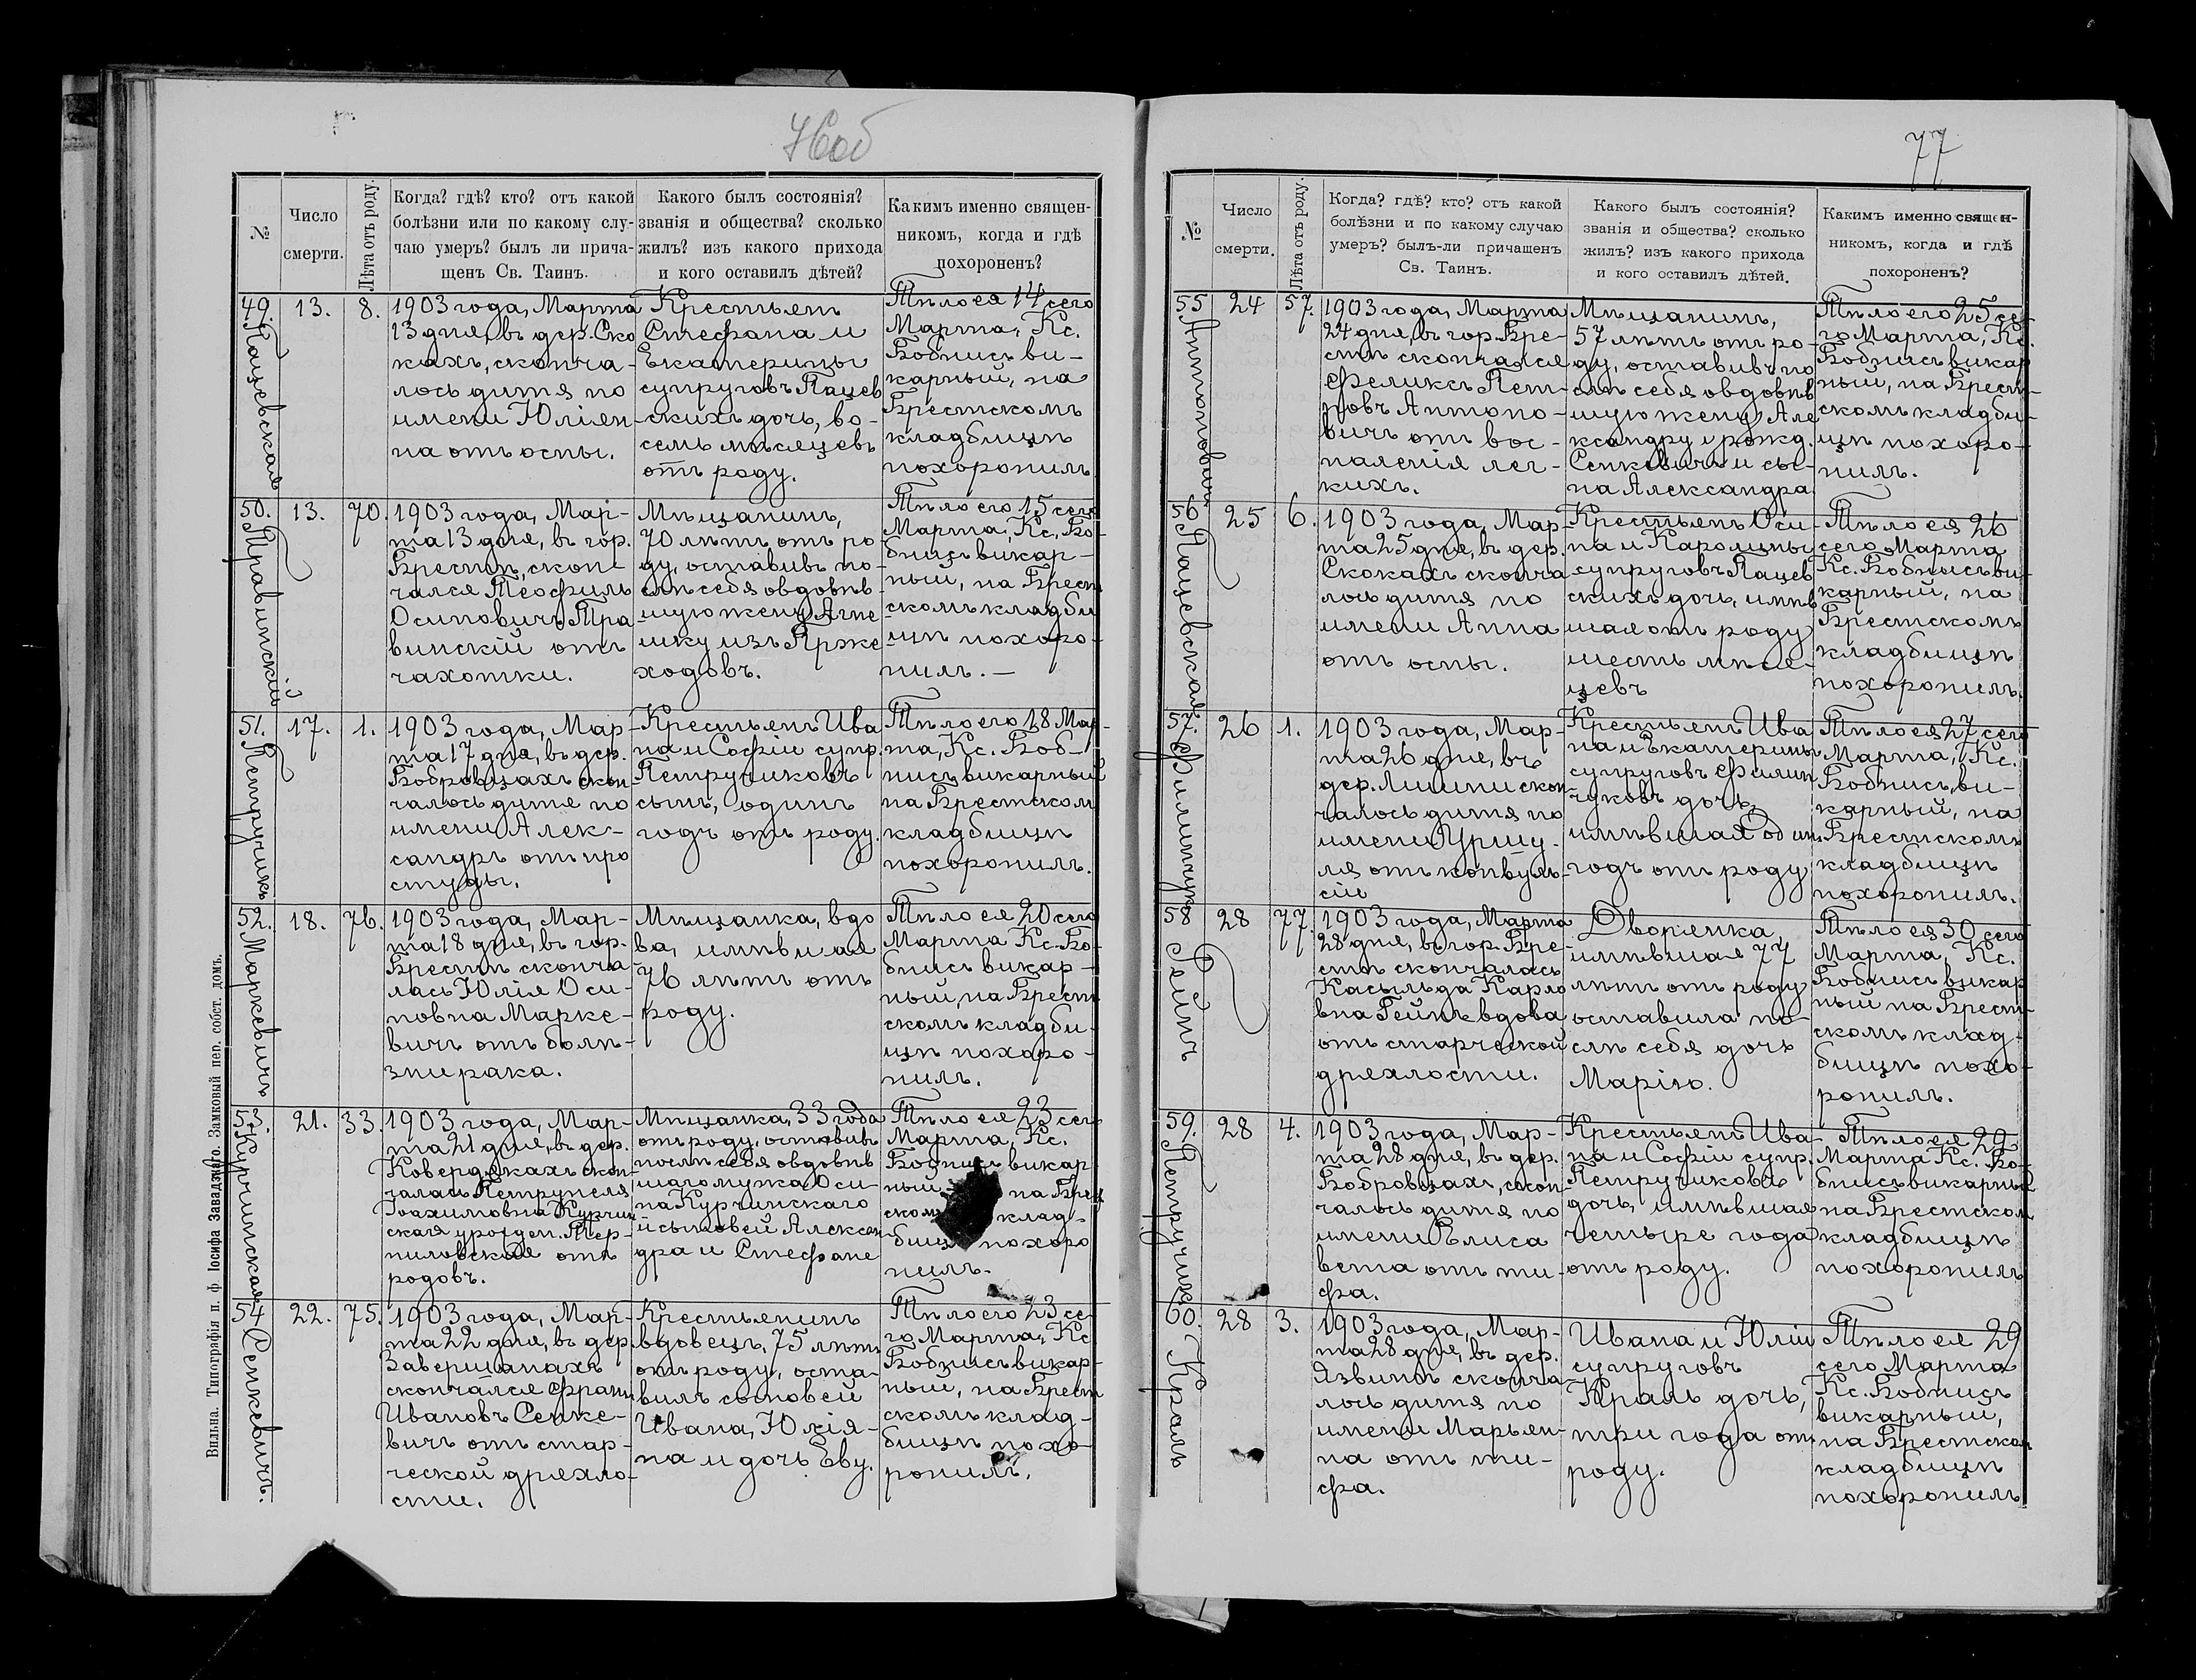 76об
№
Число
смерти.
Лѣта отъ роду.
Когда? гдѣ? кто? отъ какой
болѣзни или по какому слу-
чаю умеръ? былъ ли прича-
щенъ Св. Таинъ.
Какого былъ состоянія?
званія и общества? сколько
жилъ? изъ какого прихода
и кого оставилъ дѣтей?
Какимъ именно священ-
никомъ, когда и гдѣ
похороненъ?
49.
Пацевская
13.
8.
1903 года, Марта
13 дня, въ дер. Ско
кахъ, сконча-
лось дитя по
имени Юліян-
на отъ оспы.
Крестьянъ
Стефана и
Екатерины
супруговъ Пацев
скихъ дочь, во-
семь мѣсяцевъ
отъ роду.
Тѣло ея 14 сего
Марта, Кс.
Бобнисъ ви-
карный, на
Брестскомъ
кладбищѣ
похоронилъ
50.
Травинскій
13.
70.
1903 года, Мар-
та 13 дня, въ гор.
Брестѣ, скон-
чался Теофиль
Осиповичъ Тра
винскій отъ
чахотки.
Мѣщанинъ,
70 лѣтъ отъ ро
ду, оставивъ по-
слѣ себя овдовѣ-
шую жену Агне
шку изъ Прже
ходовъ.
Тѣло его 15 сего
Марта, Кс. Бо-
бнисъ викар-
ный, на Брест
скомъ кладби
щѣ похоро-
нилъ. —
51.
Петручикъ
17.
1.
1903 года, Мар-
та 17 дня, въ дер.
Бобровцахъ скон
чалось дитя по
имени Алек-
сандръ отъ про
студы.
Крестьянъ Ива
на и Софіи супр.
Петручиковъ
сынъ, одинъ
годъ отъ роду.
Тѣло его 18 Мар-
та, Кс. Боб-
нисъ викарный
на Брестском
кладбищѣ
похоронилъ.
52.
Маркевичъ
18.
76.
1903 года, Мар-
та 18 дня, въ гор.
Брестѣ сконча-
лась Юлія Оси-
повна Марке-
вичъ отъ болѣ-
зни рака.
Мѣщанка, вдо
ва, имѣвшая
76 лѣтъ отъ
роду.
Тѣло ея 20 сего
Марта Кс. Бо-
бнисъ викар-
ный, на Брест
скомъ кладби-
щѣ похоро-
нилъ.
53.
Курчинская
21.
33.
1903 года, Мар-
та 21 дня, въ дер.
Ковердякахъ скон
чалась Петрунеля
Іоахимовна Курчин
ская урожден. Тер-
пиловская отъ
родовъ.
Мѣщанка, 33 года
отъ роду, оставивъ
послѣ себя овдовѣ
шаго мужа Оси-
па Курчинскаго
и сыновей Алексан
дра и Стефана
Тѣло ея 23 сего
Марта, Кс.
Бобнисъ викар
ный на Брес
ском клад-
бищѣ похоро
нилъ.
54
Сенкевичъ.
22.
75.
1903 года, Мар-
та 22 дня, въ дер.
Заверщанахъ
скончался Франц
Ивановъ Сенке-
вичъ отъ стар-
ческой дряхло-
сти.
Крестьянинъ
вдовецъ, 75 лѣтъ
отъ роду, оста-
вилъ сыновей
Ивана, Юлія-
на и дочь Еву.
Тѣло его 23 се-
го Марта, Кс
Бобнисъ викар-
ный, на Брест
скомъ клад-
бищѣ похо-
ронилъ.
Вильна. Типографія п. ф. Іосифа Завадзкаго. Замковый пер. собст. домъ.
77
№
Число
смерти.
Лѣта отъ роду.
Когда? гдѣ? кто? отъ какой
болѣзни и по какому случаю
умеръ? былъ-ли причащенъ
Св. Таинъ.
Какого былъ состоянія?
званія и общества? сколько
жилъ? изъ какого прихода
и кого оставилъ дѣтей.
Какимъ именно священ-
никомъ, когда и гдѣ
похороненъ?
55
Антоновичъ
24
57.
1903 года, Марта
24 дня, въ гор. Бре-
стѣ скончался
Феликсъ Пет-
ровъ Антоно-
вичъ отъ вос-
паленія лег-
кихъ.
Мѣщанинъ,
57 лѣтъ отъ ро-
ду, оставивъ по
слѣ себя овдовѣ
шую жену Але
ксандру урожд.
Сенкевичъ и сы-
на Александра
Тѣло его 25 се-
го Марта, Кс.
Бобнисъ викар
ный, на Брест-
скомъ кладби-
щѣ похоро-
нилъ.
56
Пацевская
25
6.
1903 года, Мар-
та 25 дня, въ дер.
Скокахъ сконча
лось дитя по
имени Анна
отъ оспы.
Крестьянъ Оси-
па и Каролины
супруговъ Пацев
скихъ дочь, имѣв
шая отъ роду
шесть мѣся-
цевъ
Тѣло ея 26
сего Марта
Кс. Бобнисъ ви-
карный, на
Брестскомъ
кладбищѣ
похоронилъ.
57.
Филипчукъ
26
1.
1903 года, Мар-
та 26 дня, въ
дер. Лишни скон
чалось дитя по
имени Уршу-
ля отъ конвуль-
сіи
Крестьянъ Ива
на и Екатерины
супруговъ Филип
чуковъ дочь,
имѣвшая один
годъ отъ роду
Тѣло ея 27 сего
Марта, Кс.
Бобнисъ, ви-
карный, на
Брестскомъ
кладбищѣ
похоронилъ.
58
Гейнъ
28
77.
1903 года, Марта
28 дня, въ гор. Бре-
стѣ скончалась
Касыльда Карло
вна Гейнъ вдова
отъ старческой
дряхлости.
Дворянка,
имѣвшая 77
лѣтъ отъ роду
оставила по-
слѣ себя дочь
Марію.
Тѣло ея 30 сего
Марта, Кс.
Бобнисъ викар
ный на Брест-
скомъ клад-
бищѣ похо-
ронилъ.
59.
Петручикъ
28
4.
1903 года, Мар-
та 28 дня, въ дер.
Бобровцахъ, скон-
чалось дитя по
имени Елиса
вета отъ ти-
фа.
Крестьянъ Ива-
на и Софіи супр.
Петручиковъ
дочь, имѣвшая
четыре года
отъ роду.
Тѣло ея 29
Марта Кс. Бо-
бнисъ викарный
на Брестском
кладбищѣ
похоронилъ
60.
Краль
28
3.
1903 года, Мар-
та 28 дня, въ дер.
Язвинѣ сконча
лось дитя по
имени Марьян-
на отъ ти-
фа.
Ивана и Юліи
супруговъ
Краль дочь,
три года отъ
роду.
Тѣло ея 29
сего Марта
Кс. Бобнисъ
викарный,
на Брестском
кладбищѣ
похоронилъ